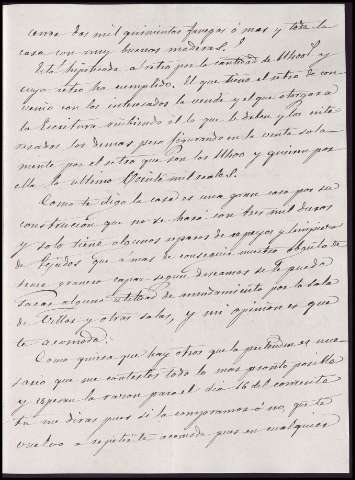 cerrar dos mil quinientas fanegas ó mas y toda la
casa con muy buenas maderas.
Está hipotecada a retro por la cantidad de
cuyo retro ha cumplido. El que tiene el retro de con-
venio con los interesados la vende y el que otorgara
la Escritura recibiendo el lo que le deben y los inte-
resados los demas pero figurando en la venta sola-
mente por el retro que son los y quieren por
ella lo ultimo Veinte mil reales.
Como te digo la casa es una gran casa por su
construcion que no se hará con tres mil duros
y solo tiene algunos reparos de y limpieza
de tejidos que a mas de conseguir nuestro objeto de
tener granero capaz segun deseamos se le puede
sacar alguna utilidad de arrendamiento por la sala
de Villar y otras salas, y mi opinion es que
te acomoda.
Como quiera que hay otros que la pretenden es nece-
sario que me contestes todo lo mas pronto posible
y esperan la razon para el dia 16 del corriente
tu me diras pues si la compramos ó no, que te
vuelvo a repetir te acomoda pues en cualquier